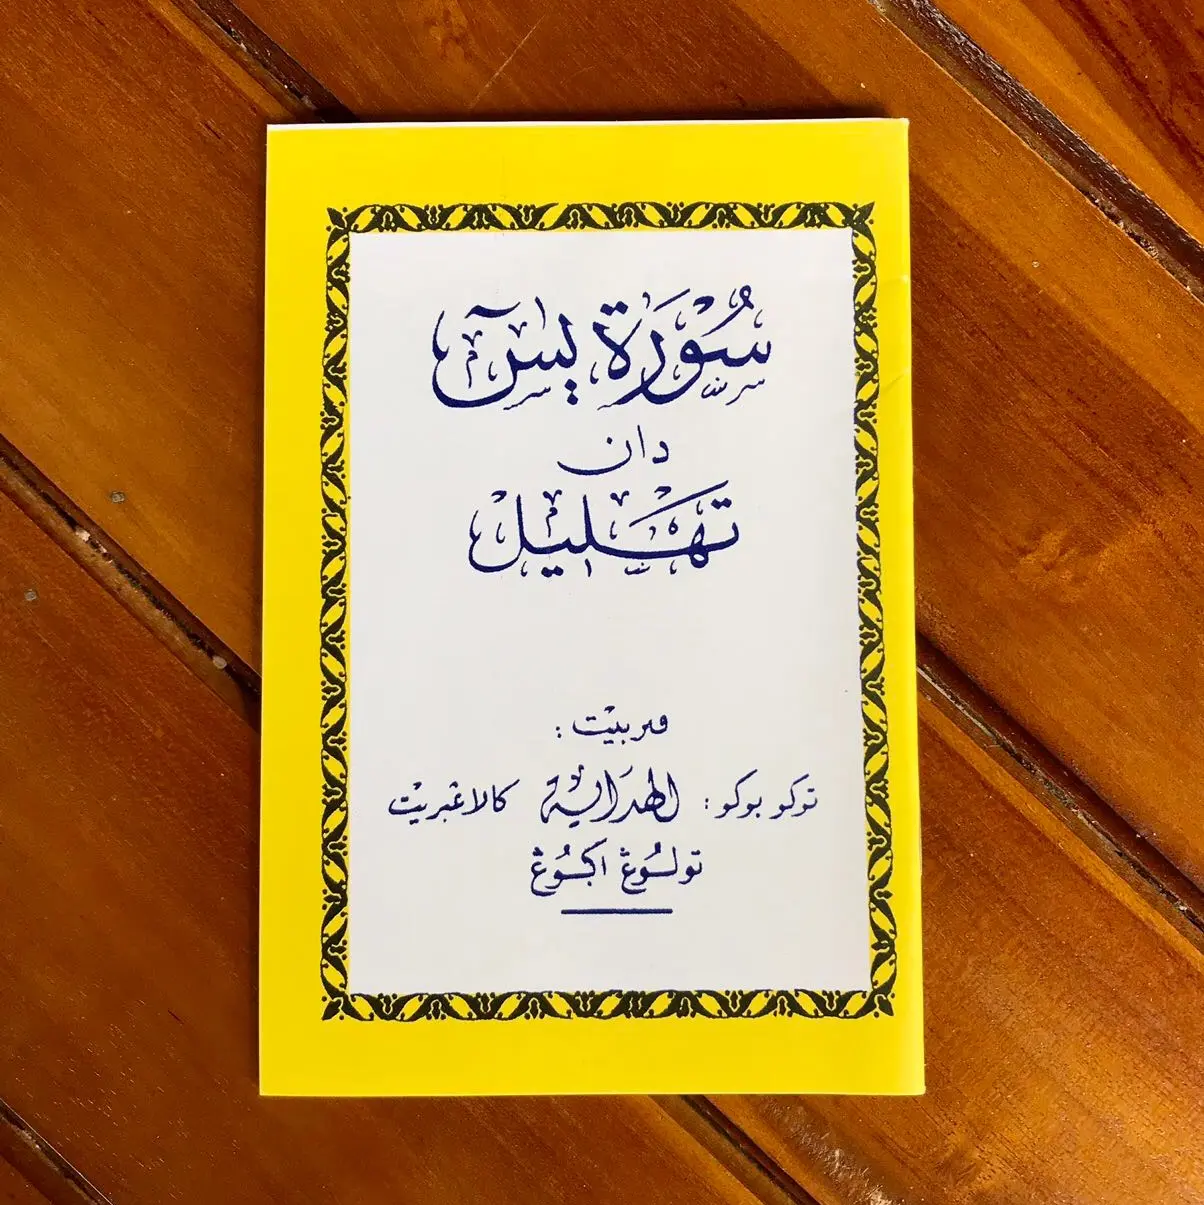 سُوْرَة يٓسٓ
دان
تَهْلِيْل
ڤنربيْت :
توكو بوكو : الهِدَايَة كالاڠبريْت
تولُوڠ اکُوڠ